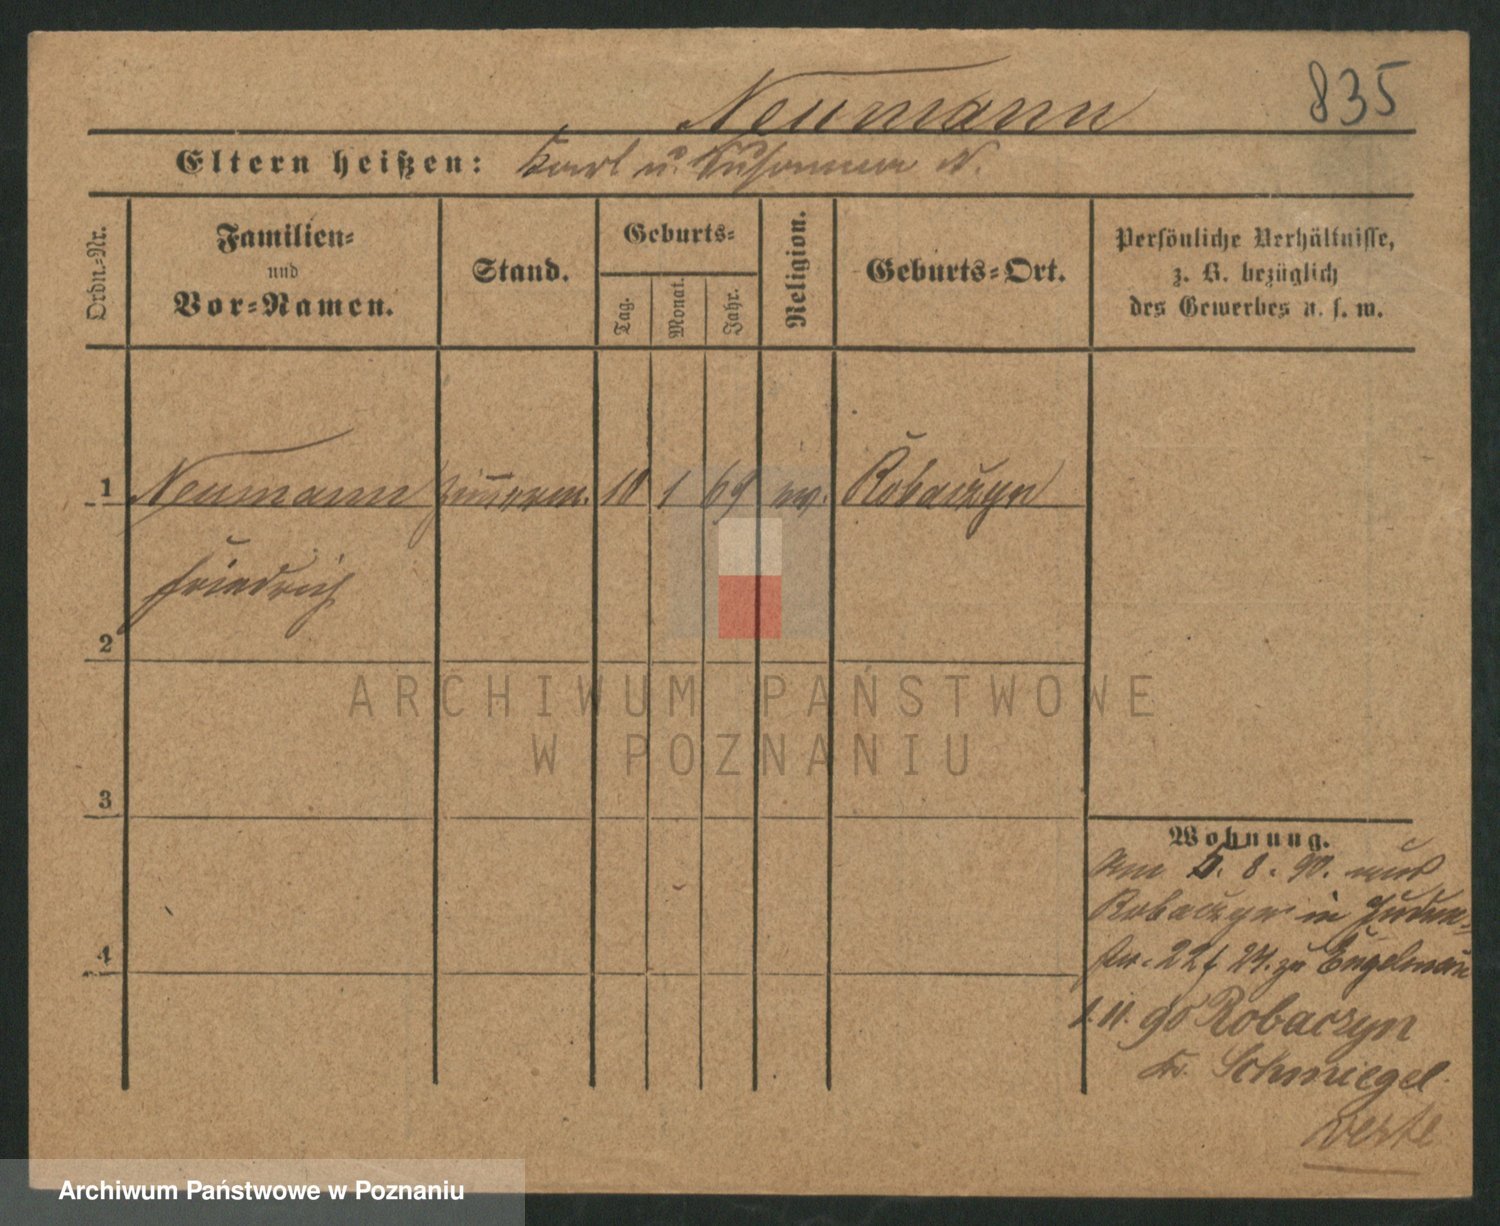 835
Neumann
Eltern heißen: Karl u. Susanna N.
Ordn.-Nr.
Familien-
und
Vor-Namen.
Stand.
Geburts-
Tag.
Monat.
Jahr.
Religion.
Geburts-Ort.
Persönliche Verhältnisse,
z. B. bezüglich
des Gewerbes u. s. w.
1 Neumann Zimmerm. 10 1 69 ev. Robaczyn
Friedrich
2
ARCHIWUM PAŃSTWOWE
W POZNANIU
3
4
Wohnung.
Am 5. 8. 90. aus
Robaczyn in Juden-
str. 22 f 27. zu Engelmann
1. 11. 90 Robaczyn
Kr. Schmiegel.
Archiwum Państwowe w Poznaniu